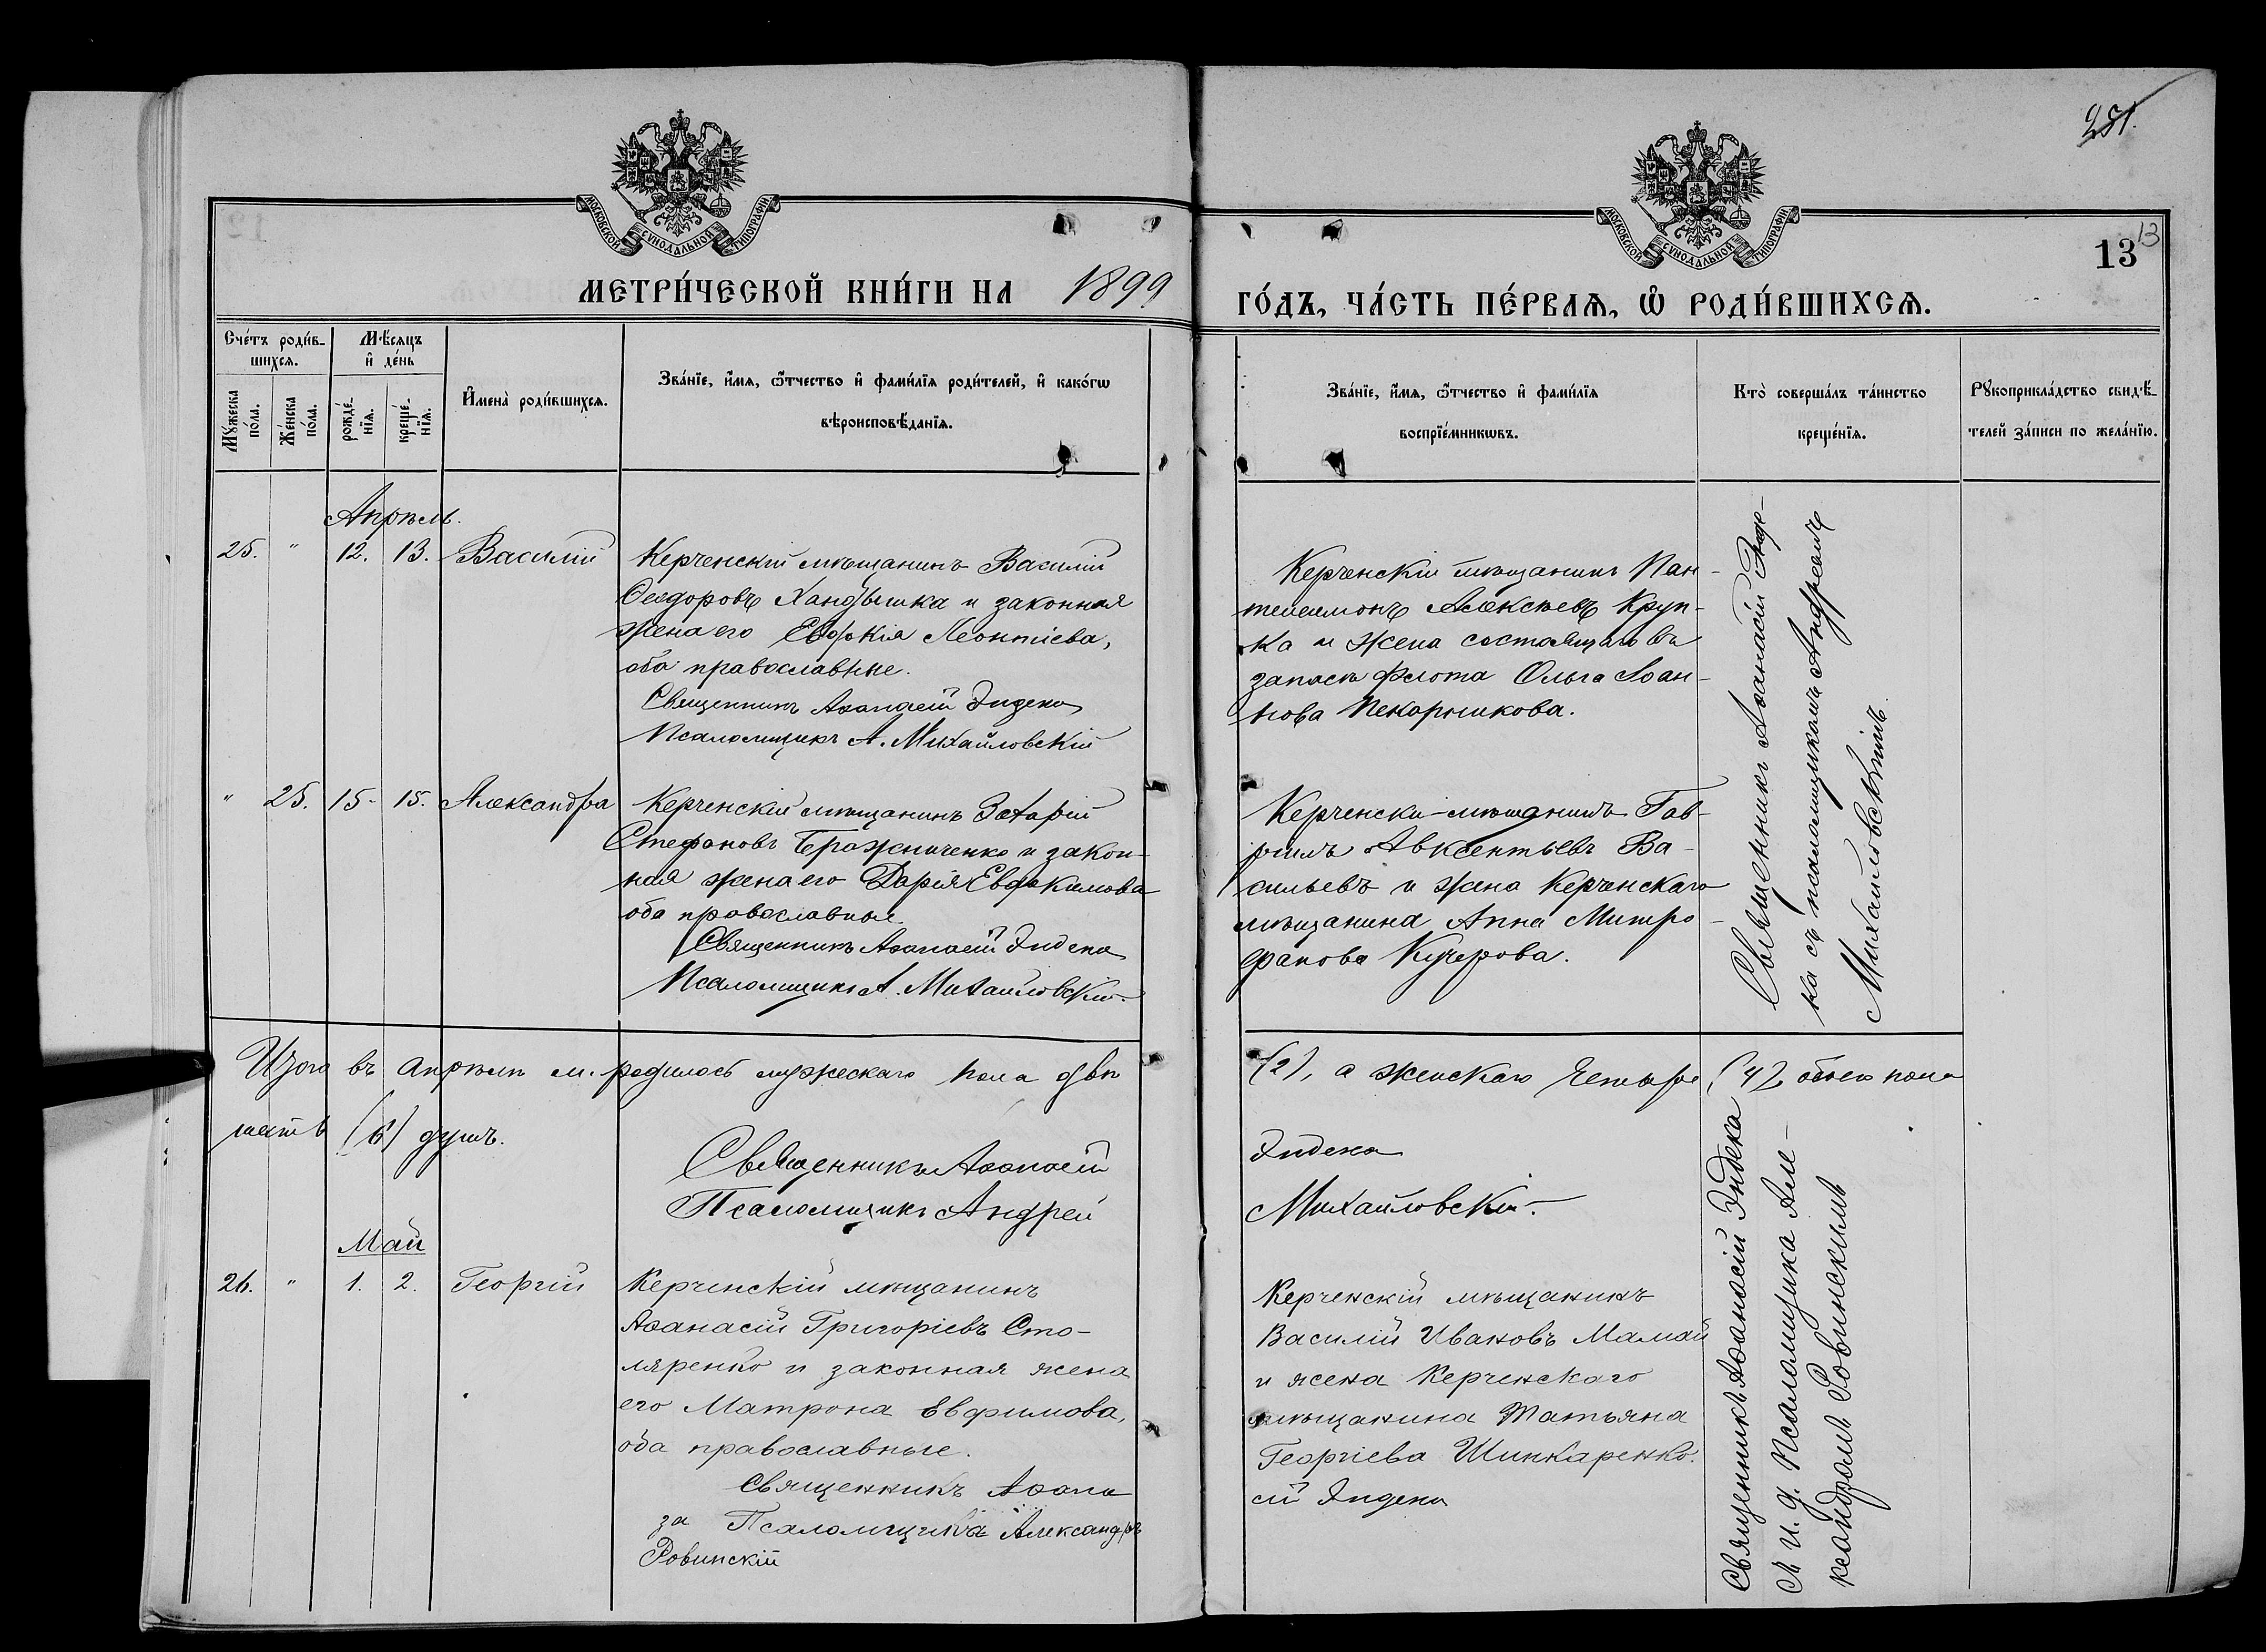 251.
МОСКОВСКОЙ СѴНОДАЛЬНОЙ ТИПОГРАФІИ
МОСКОВСКОЙ СѴНОДАЛЬНОЙ ТИПОГРАФІИ
13
13
МЕТРИ́ЧЕСКОЙ КНИ́ГИ НА 1899
ГО́ДЪ, ЧА́СТЬ ПЕ́РВАѦ, Ѡ҆ РОДИ́ВШИХСѦ.
Сче́тъ роди́в-
шихсѧ.
Мѣ́сѧцъ
и҆ де́нь
Мꙋ́жеска
по́ла.
Же́нска
по́ла.
рожде́-
нїѧ.
креще́-
нїѧ.
И҆мена̀ роди́вшихсѧ.
Зва́нїе, и҆́мѧ, ѻ҆́тчество и҆ фами́лїѧ роди́телей, и҆ како́гѡ
вѣроисповѣ́данїѧ.
Зва́нїе, и҆́мѧ, ѻ҆́тчество и҆ фами́лїѧ
воспрїе́мникѡвъ.
Кто̀ соверша́лъ та́инство
креще́нїѧ.
Рꙋкоприкла́дство свидѣ́-
телей за́писи по жела́нїю.
Апрѣль.
25. " 12. 13. Василій
Керченскій мѣщанинъ Василій
Ѳеодоровъ Хандышка и законная
жена его Евдокія Леонтіева,
оба православные.
Священникъ Аѳанасій Эндека
Псаломщикъ А. Михайловскій
Керченскій мѣщанинъ Пан-
телеимонъ Алексѣевъ Круп-
ка и жена состоящаго въ
запасѣ флота Ольга Іоан-
нова Пекарникова.
Священникъ Аѳанасій Энде-
ка съ псаломщикомъ Андреемъ
Михайловскимъ.
" 25. 15. 15. Александра
Керченскій мѣщанинъ Захарій
Стефановъ Бражниченко и закон-
ная жена его Дарія Евдокимова
оба православные
Священникъ Аѳанасій Эндека
Псаломщикъ А. Михайловскій
Керченскій мѣщанинъ Гав-
риилъ Авксентьевъ Ва-
сильевъ и жена Керченскаго
мѣщанина Анна Митро-
фанова Кучерова.
Итого въ апрѣлѣ м. родилось мужескаго пола двѣ (2), а женскаго четыре (4), обоего пола
шесть (6) душъ.
Священникъ Аѳанасій Эндека
Псаломщикъ Андрей Михайловскій.
Май
26. " 1. 2. Георгій
Керченскій мѣщанинъ
Аѳанасій Григоріевъ Сто-
ляренко и законная жена
его Матрона Евфимова,
оба православные.
Священникъ Аѳанасій Эндека
за Псаломщика Александръ
Ровинскій
Керченскій мѣщанинъ
Василій Ивановъ Мамай
и жена Керченскаго
мѣщанина Татьяна
Георгіева Шинкаренко.
Священникъ Аѳанасій Эндека
съ и. д. Псаломщика Але-
ксандромъ Ровинскимъ